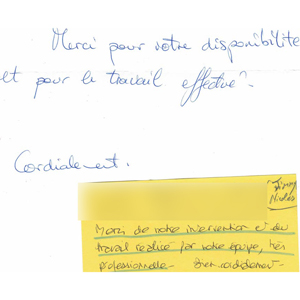 Merci pour votre disponibilité
et pour le travail effectué.
Cordialement.
Merci de votre intervention et du
travail réalisé par votre équipe, très
professionnelle - Bien cordialement -